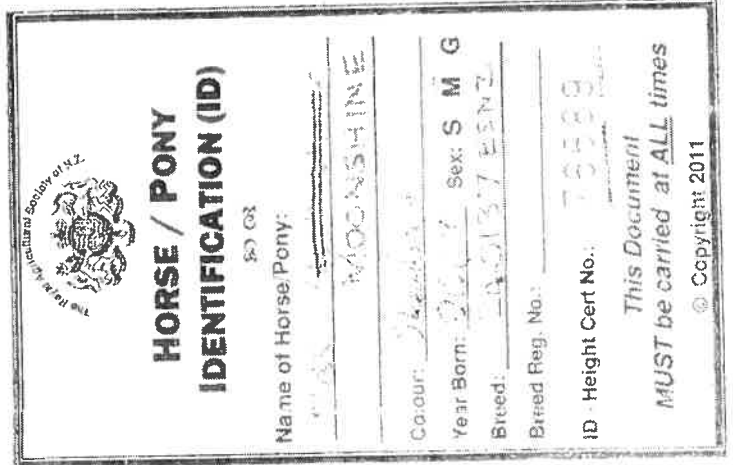 The Royal Agricultural Society of N.Z.
HORSE / PONY
IDENTIFICATION (ID)
Name of Horse/Pony:
MOONSHINE
Colour:
Year Born: Sex: S M G
Breed:
Breed Reg. No.:
ID - Height Cert No.:
This Document
MUST be carried at ALL times
© Copyright 2011